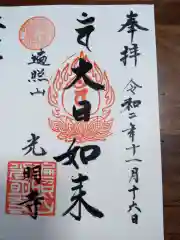 奉拝
令和二年十一月十六日
大日如来
遍照山
光明寺